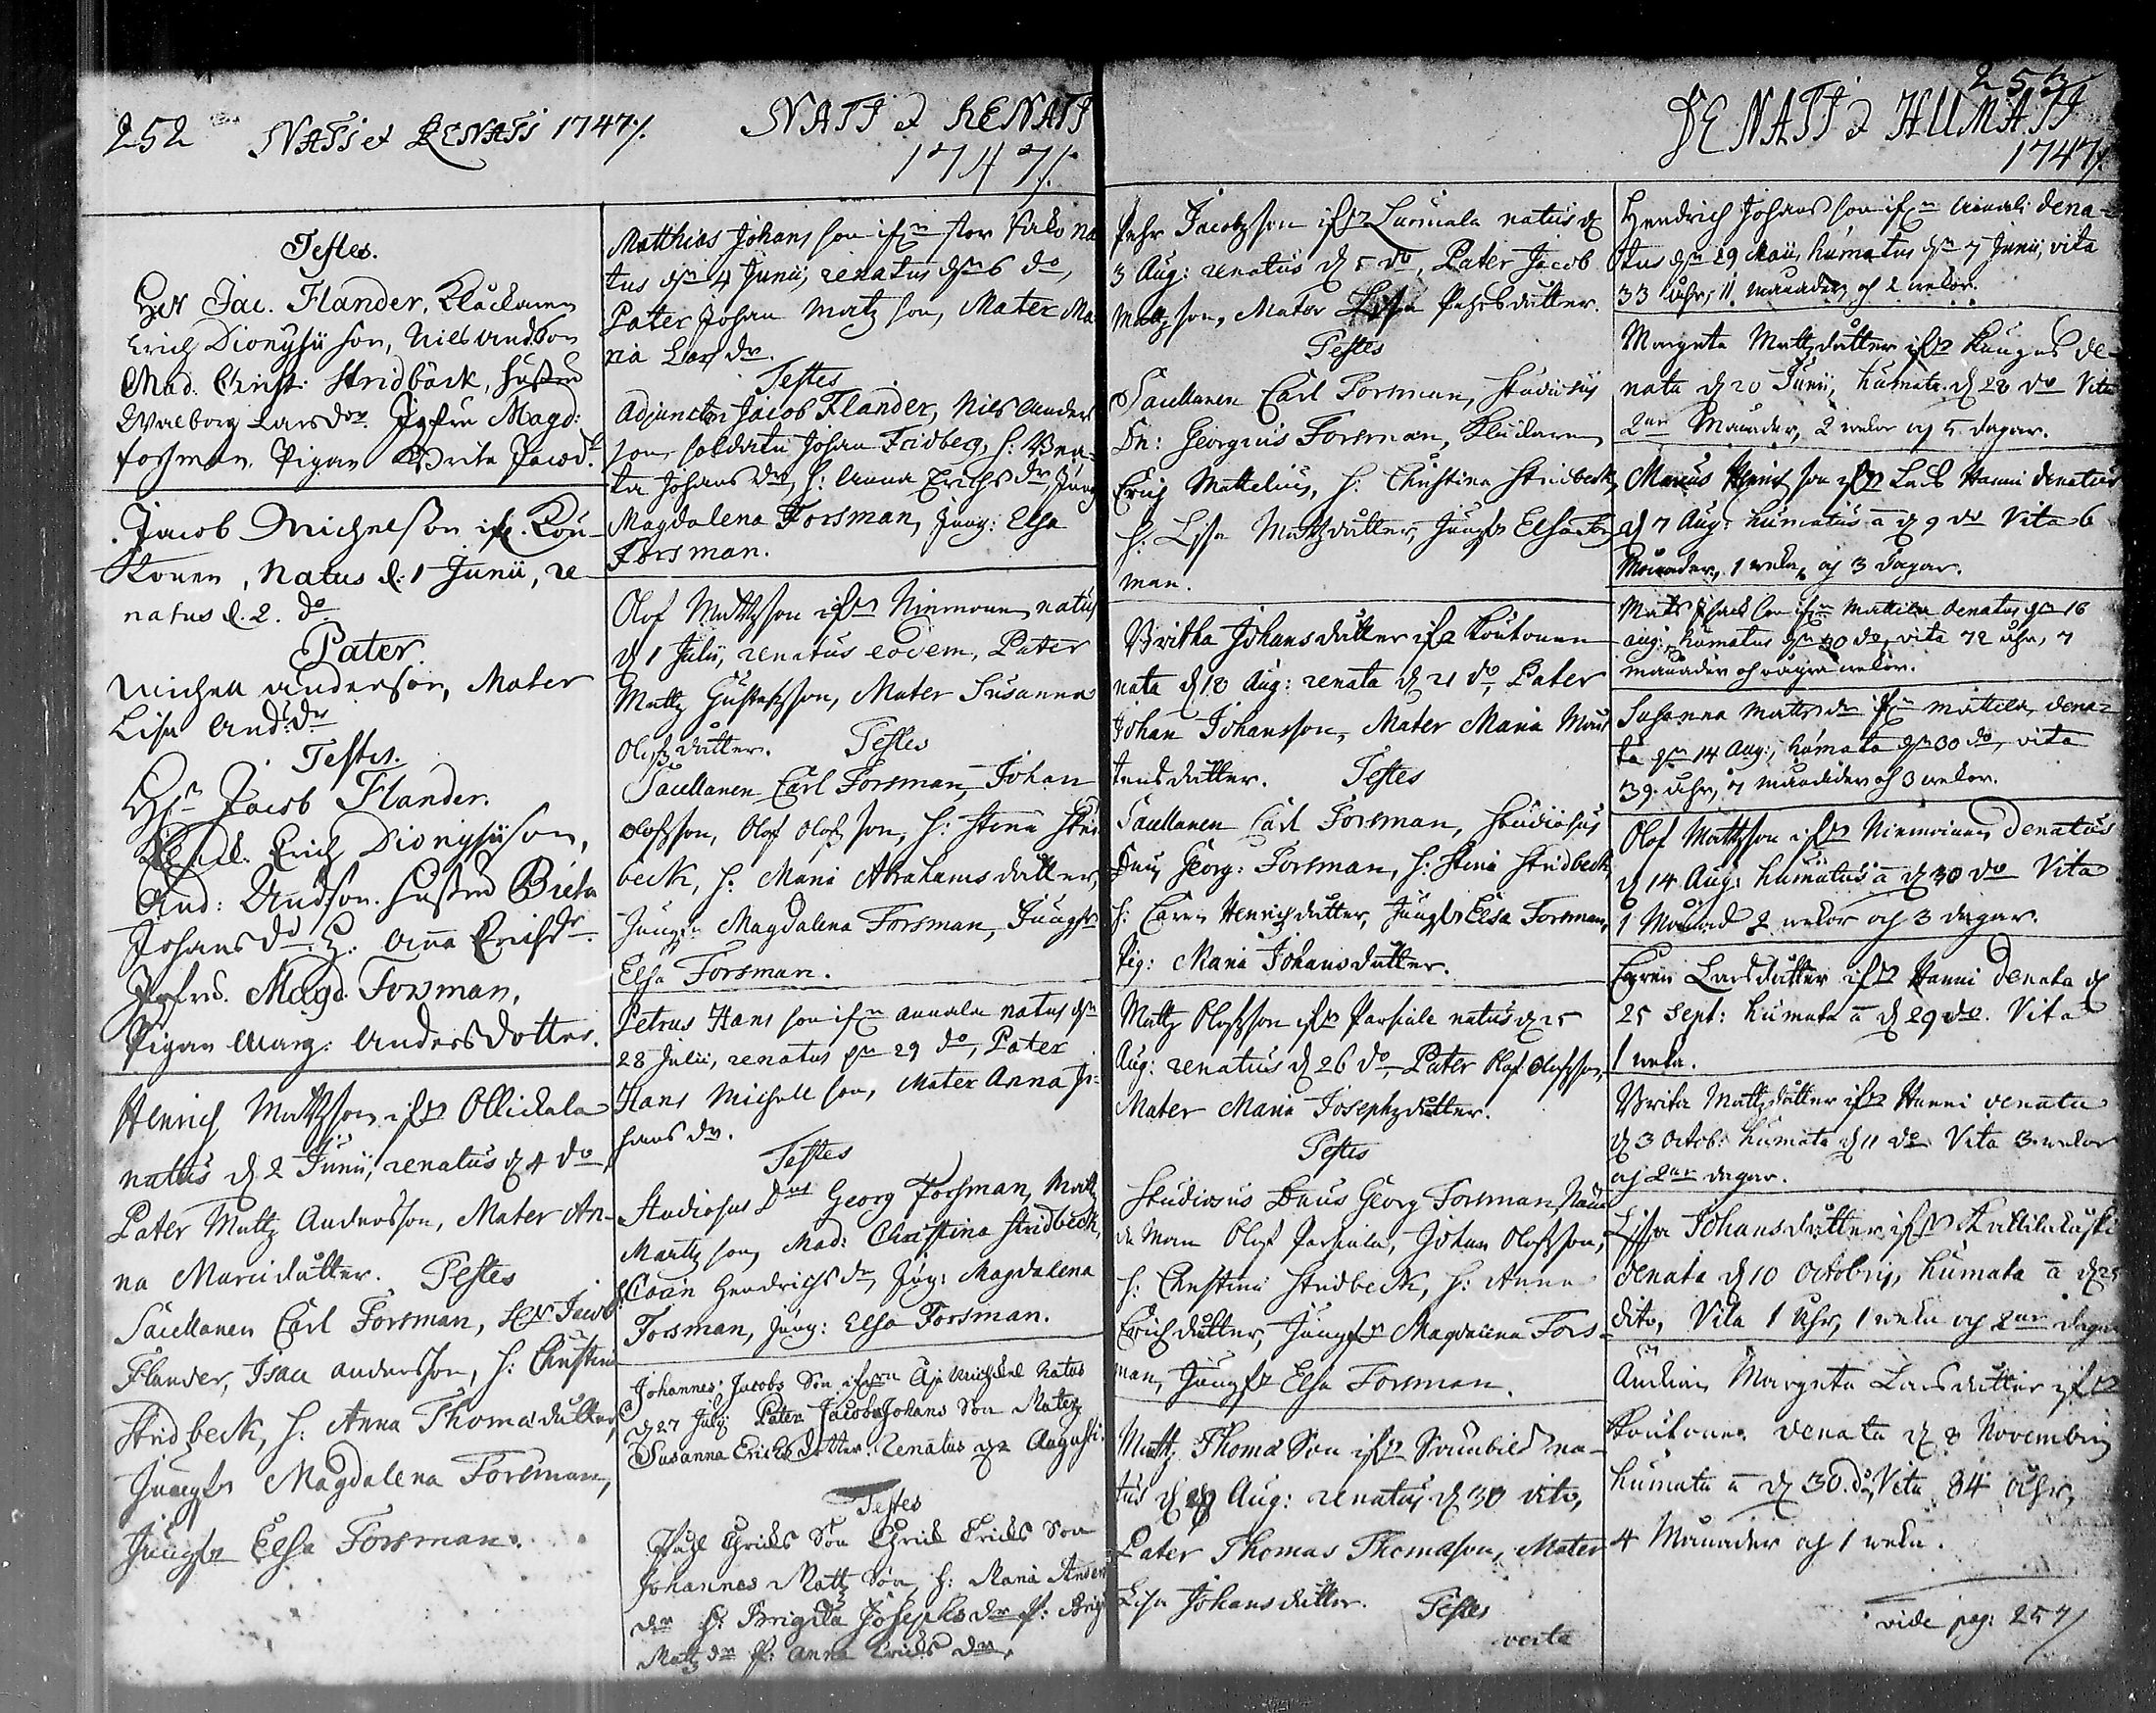 252 NATI et RENATI 1747/.
Testes.
Hr Jac. Flander, Klåckaren
Erich Dionysii son, Nils Andson
Mad. Christ: Stridbäck, hustru
Walborg Lars dr. Jgfru Magd:
Forsman. Pigan Brita Jacobdr
Jacob Michelson ifr. Kou-
konen, Natus d. 1 Junii, re
natus d. 2. do
Pater.
Michell Anderson, Mater
Lisa And: dr
Testes.
Hr Jacob Flander.
Erich Dionysiison,
And: Andson. Hustru Brita
Johans dr. H. Anna Erichsdr.
Jgfru. Magd. Forsman,
Pigan Marg: Anders dotter.
Henrich Mattzson ifrn Ollickala
natus d 2 Junii, renatus d 4 do
Pater Mattz Andersson, Mater An-
na Marci dåtter. Testes
Sacellanen Carl Forsman, Hr Jacob
Flander, Isac Andersson, h: Christina
Stridbeck, h: Anna Thomæ dåtter,
Jungfr Magdalena Forsman,
Jungfr Elsa Forsman.
NATI et RENATI
1747/.
Matthias Johans son ifrn stor na
tus dn 4 Junii, renatus dn 6 do,
Pater Johan Matz son, Mater Ma
ria Lars dr.
Testes
Adjuncten Jacob Flander, Nils Anders
son, soldaten Johan Fridberg, h: Brea-
ta Johans dr, h: Anna Erichs dr, Jung
Magdalena Forsman, Jung: Elsa
Forsman.
Olof Mattzson ifrn Ninimoinen natus
d 1 Julii, renatus eodem, Pater
Mattz Gustafsson, Mater Susanna
Olofs dåtter. Testes
Sacellanen Carl Forsman, Johan
Olofsson, Olof Olofsson, h: Stina Strid
beck, h: Maria Abrahams dåtter,
Jungfr Magdalena Forsman, Jungfr
Elsa Forsman.
Petrus Hans son ifrn Annala natus dn
28 Julii, renatus dn 29 do, Pater
Hans Michell son, Mater Anna Jo-
hans dr.
Testes
Studiosus Dnus Georg Forsman, Mattz
Martz son, Mad: Christina Stridbeck,
Carin Hendrichs dr, Jug: Magdalena
Forsman, Jung: Elsa Forsman.
Johannes Jacobs Son ifrn Natus
d 27 July Pater Jacob Johans Son Mater
Susanna Erichs dotter. Renatus d 2 Augusti.
Testes
Påhl Erichs Son Erich Erichs Son
Johannes Mattz Son, h: Maria Anders
dr h: Brigita Josephs dr P: Brig
Mattz dr P: Anna Erichs dr.
Pehr Jacobsson ifrn Laurnala natus d
3 Aug: renatus d 5 do, Pater Jacob
Mattzson, Mater Lisa Pehrsdåtter.
Testes
Sacellanen Carl Forsman, Studiosus
Dn: Georgius Forsman, Klåckaren
Erich Mattelius, h: Christina Stridbeck,
h: Lisa Mattzdåtter, Jungfr Elsa Fors
man.
Britha Johansdåtter ifrn Koukonen
nata d 18 Aug: renata d 21 do, Pater
Johan Johansson, Mater Maria Mår
tensdåtter. Testes
Sacellanen Carl Forsman, Studiosus
Dnus Georg: Forsman, h: Stina Stridbeck,
h: Caren Henrichdåtter, Jungfr Elsa Forsman,
Pig: Maria Johansdåtter.
Mattz Olofsson ifrn Parsiala natus d 25
Aug: renatus d 26 do, Pater Olof Olofsson,
Mater Maria Josephzdåtter.
Testes
Studiosus Dnus Georg Forsman,
Olof Parsiala, Johan Olofsson,
h: Christina Stridbeck, h: Anna
Erichdåtter, Jungfr Magdalena Fors-
man, Jungfr Elsa Forsman.
Mattz Thomæ Son ifrn na-
tus d Aug: renatus d 30 dito,
Pater Thomas Thomæson, Mater
Lisa Johansdåtter. Testes
verte
253
DENATI et HUMATI
1747/.
Hendrich Johans son ifrn Annala dena-
tus dn 29 Maii, humatus dn 7 Junii, vita
33 åhr, 11 månader och 2 wekor.
Margeta Mattzdåtter ifrn Kangas de-
nata d 20 Junii, humata d 28 do Vita
2ne Månader, 2 wekor och 5 dagar.
Marcus Henrich son ifrn Lars Hanni denatus
d 7 Aug: humatus d 9 do Vita 6
Månader, 1 weka och 3 dagar.
Mats Isack son ifrn Mattila denatus dn 16
Aug: humatus dn 30 do, vita 72 åhr, 7
månader och några wekor.
Susanna Matts dr ifrn Mattila, dena-
ta dn 14 Aug:, humata dn 30 do, vita
39 åhr, 7 månader och 3 wekor.
Olof Mattzson ifrn Ninimoinen denatus
d 14 Aug: humatus d 30 do Vita
1 Månad 2 wekor och 3 dagar.
Caren Larsdåtter ifrn Hanni denata d
25 Sept: humata d 29 do. Vita
1 weka.
Brita Mattzdåtter ifrn Hanni denata
d 3 Octob: humata d 11 do Vita 3 wekor
och 2ne dagar.
Lisa Johansdåtter ifrn
denata d 10 Octobris, humata d 25
dito, Vita 1 åhr, 1 weka och 2ne dagar
Änckian Margeta Larsdåtter ifrn
Koukonen denata d 8 Novembris
humata d 30. do, Vita 84 åhr,
4 Månader och 1 weka.
vide pag: 257/